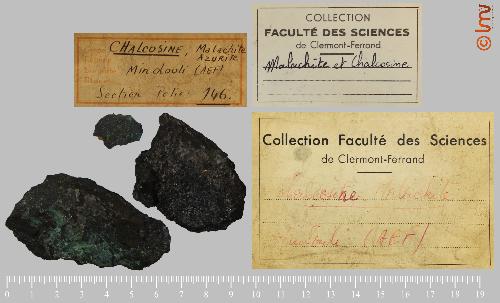 CHALCOSINE, Malachite
AZURITE
Mindouli (AEF)
Section 146.
COLLECTION
FACULTÉ DES SCIENCES
de Clermont-Ferrand
Malachite et Chalcosine
Collection Faculté des Sciences
de Clermont-Ferrand
Chalcosine Malachite
Mindouli (AEF)
lmv
0 1 2 3 4 5 6 7 8 9 10 11 12 13 14 15 16 17 18 19